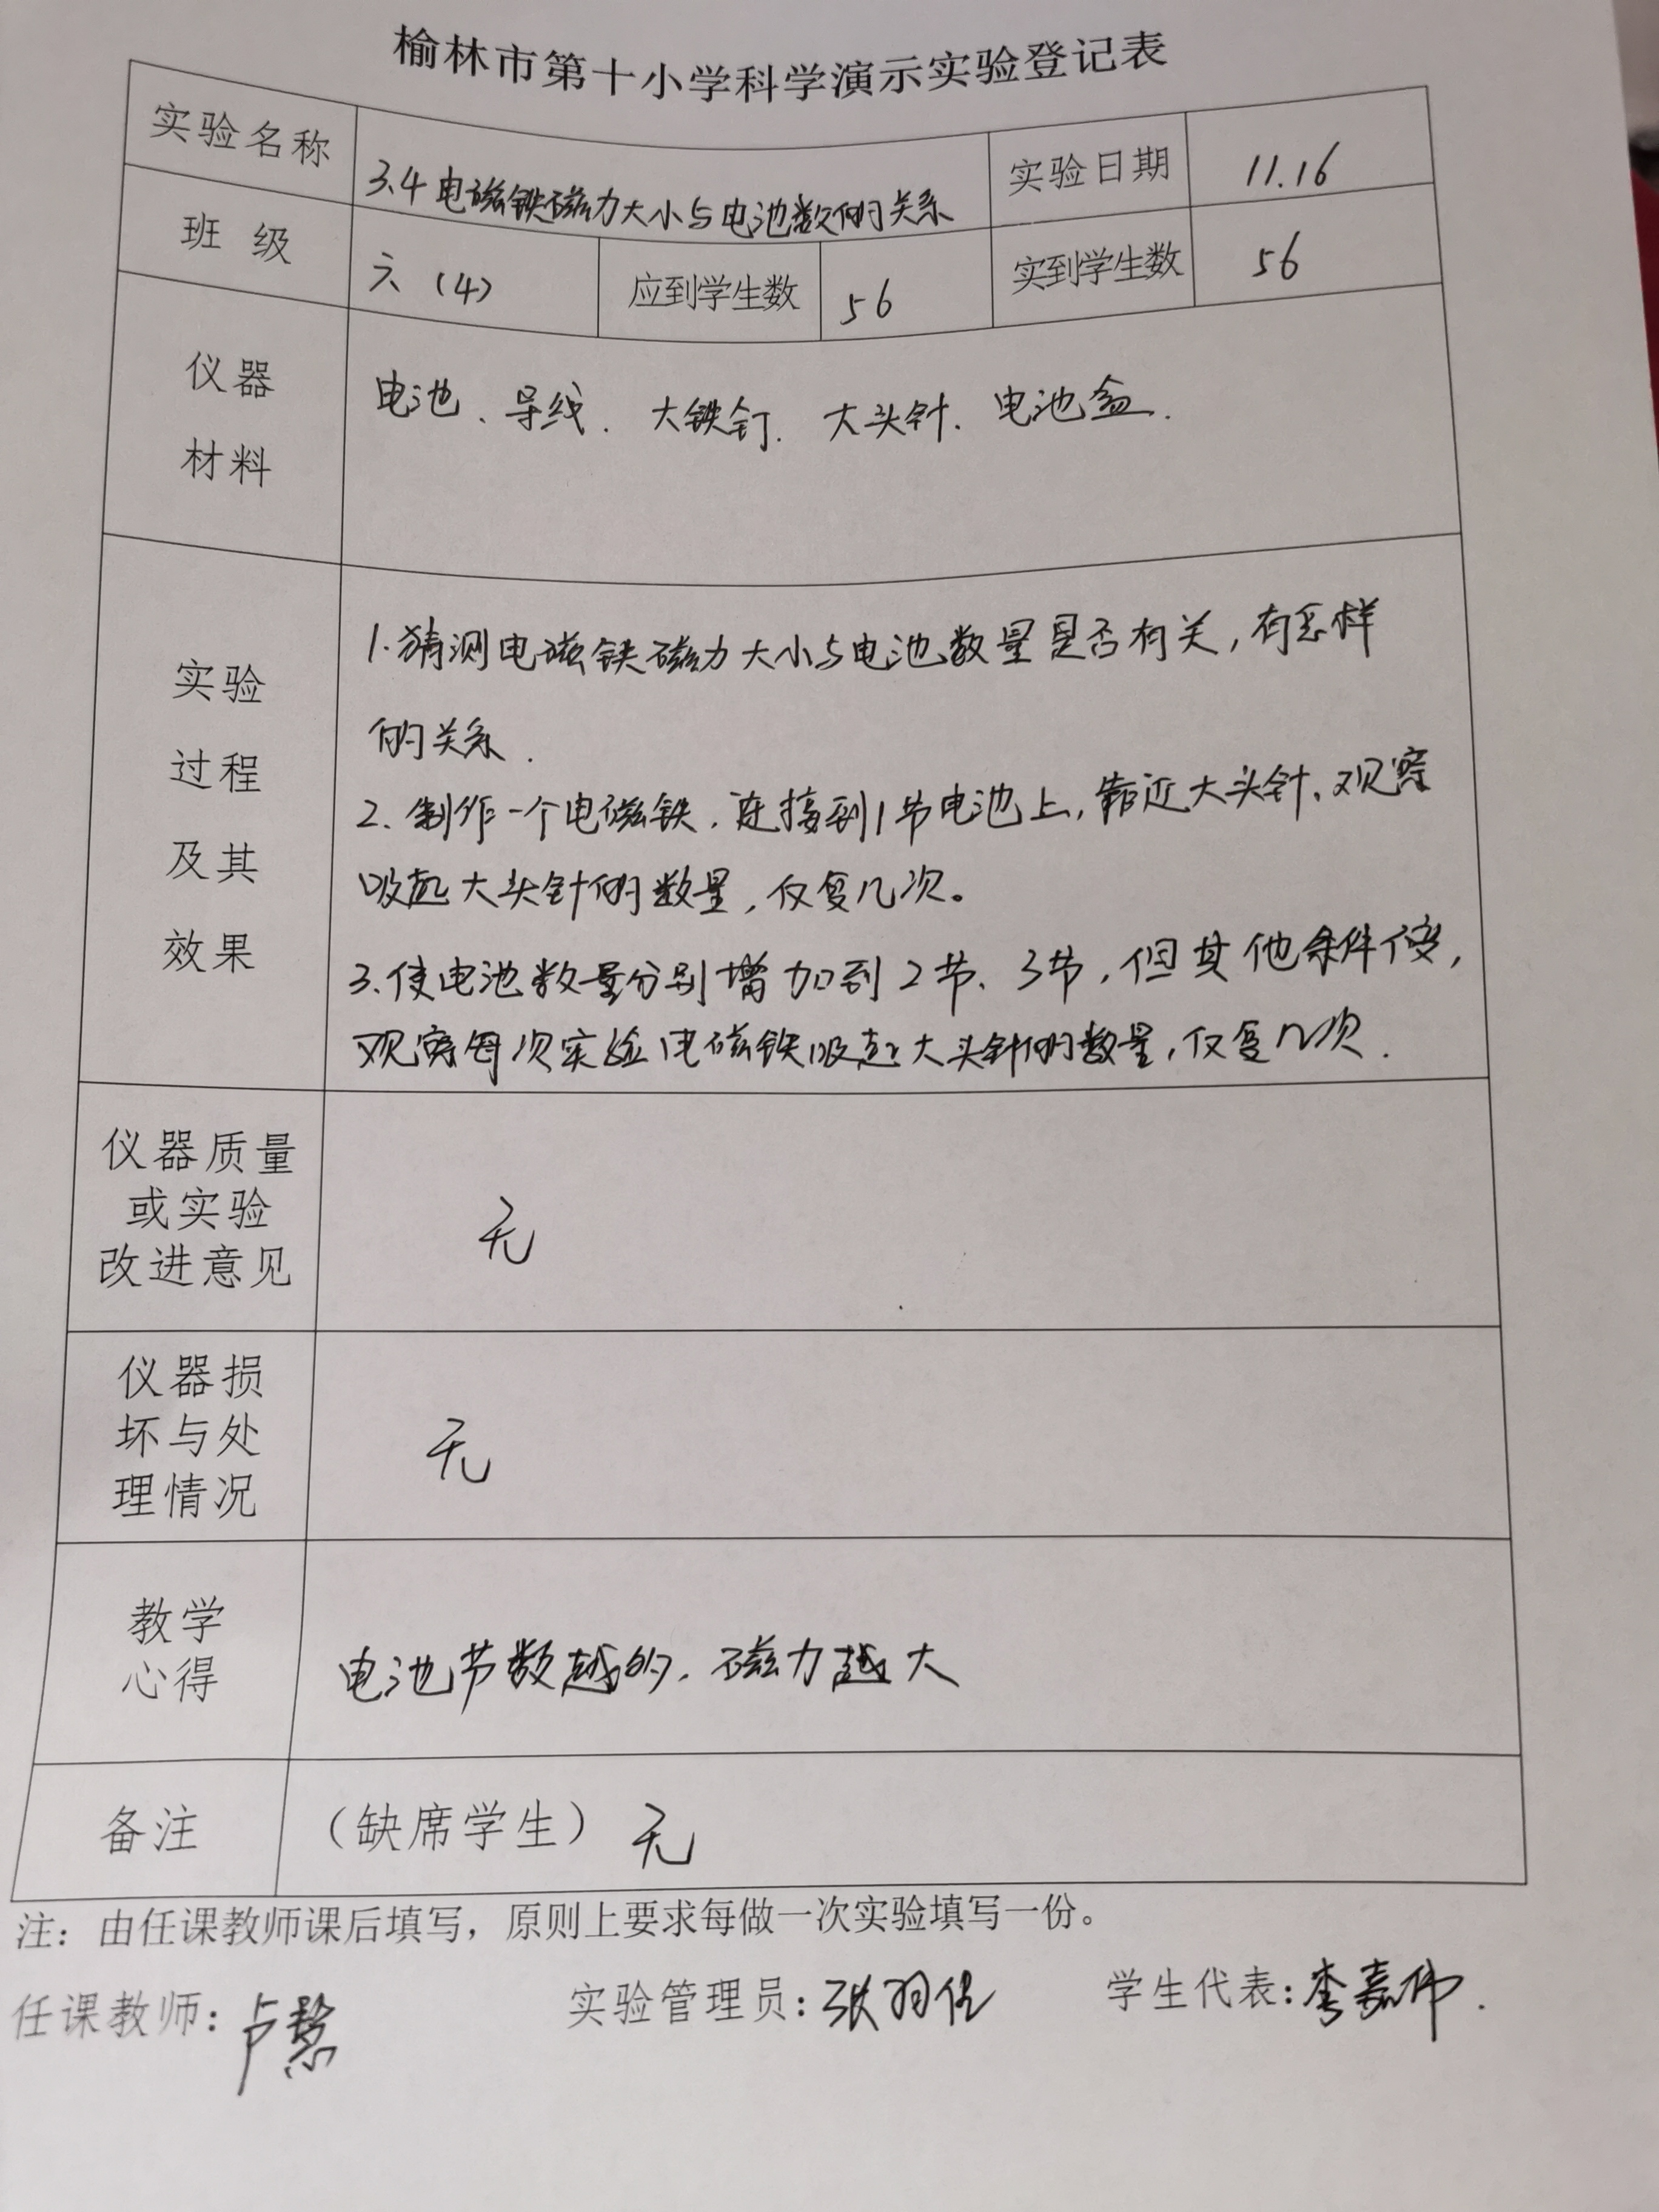 榆林市第十小学科学演示实验登记表
实验名称 3.4 电磁铁磁力大小与电池数的关系 实验日期 11.16
班 级 六（4） 应到学生数 56 实到学生数 56
仪器
材料
电池、导线、大铁钉、大头针、电池盒.
实验
过程
及其
效果
1.猜测电磁铁磁力大小与电池数量是否有关，有怎样
的关系.
2、制作一个电磁铁，连接到1节电池上，靠近大头针、观察
吸起大头针的数量，反复几次。
3、使电池数量分别增加到2节、3节，但其他条件
观察每次实验电磁铁吸起大头针的数量，反复几次.
仪器质量
或实验
改进意见
无
仪器损
坏与处
理情况
无
教学
心得
电池节数越多，磁力越大
备注 （缺席学生） 无
注：由任课教师课后填写，原则上要求每做一次实验填写一份。
任课教师：卢慧 实验管理员：张羽 学生代表：李嘉伟.